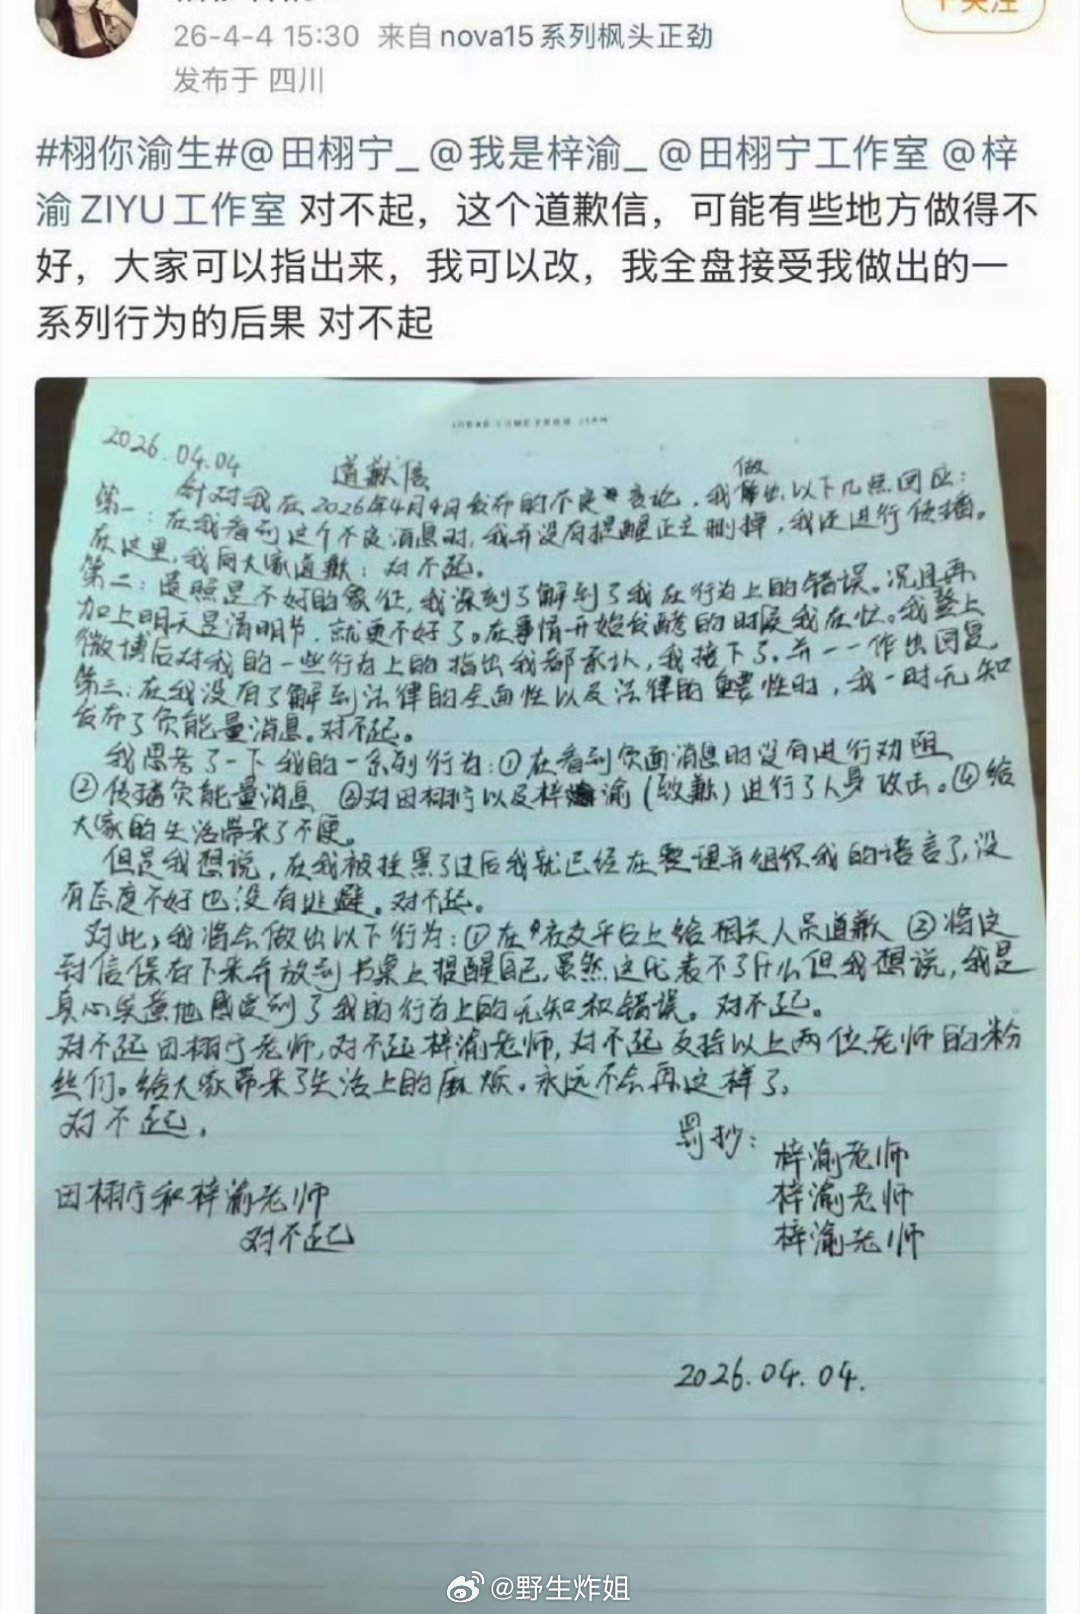 26-4-4 15:30 来自 nova15系列枫头正劲
发布于 四川
#栩你渝生#@田栩宁_ @我是梓渝_ @田栩宁工作室 @梓
渝ZIYU工作室 对不起，这个道歉信，可能有些地方做得不
好，大家可以指出来，我可以改，我全盘接受我做出的一
系列行为的后果 对不起
IDEAS COME FROM
2026.04.04
道歉信
做
针对我在2026年4月4日发布的不良言论，我出以下几点回应：
第一：在我看到这个不良消息时，我并没有提醒正主删掉，我还进行传播。
在这里，我向大家道歉：对不起。
第二：遗照是不好的象征，我深刻了解到了我在行为上的错误。况且再
加上明天是清明节，就更不好了。在事情开始发酵的时候我在忙。我登上
微博后对我的一些行为上的指出我都承认，我接下了，并一一作出回复
第三：在我没有了解到法律的全面性以及法律的重要性时，我一时无知
发布了负能量消息。对不起。
我思考了一下我的一系列行为：①在看到负面消息时没有进行劝阻
②传播负能量消息 ③对田栩宁以及梓渝（致歉）进行了人身攻击。④给
大家的生活带来了不便。
但是我想说，在我被挂黑了过后我就已经在整理并组织我的语言了，没
有态度不好也没有逃避。对不起。
对此，我将会做出以下行为：①在社交平台上给相关人员道歉 ②将这
封信保存下来并放到书桌上提醒自己，虽然这代表不了什么但我想说，我是
真心实意地感受到了我的行为上的无知和错误。对不起。
对不起田栩宁老师，对不起梓渝老师，对不起支持以上两位老师的粉
丝们。给大家带来了生活上的麻烦。永远不会再这样了。
对不起。
罚抄：
梓渝老师
梓渝老师
梓渝老师
田栩宁和梓渝老师
对不起
2026.04.04.
@野生炸姐